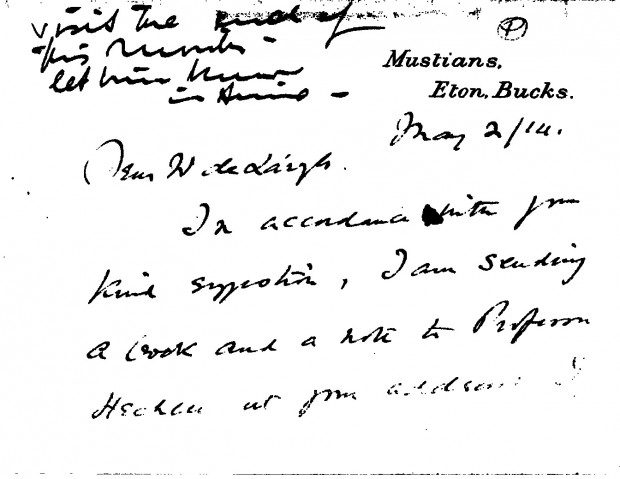 visit the end of
this month
let him know
in time –
P
Mustians,
Eton, Bucks.
May 2/14.
Dear
In accordance with your
kind suggestion, I am sending
a book and a note to Professor
at your address. I